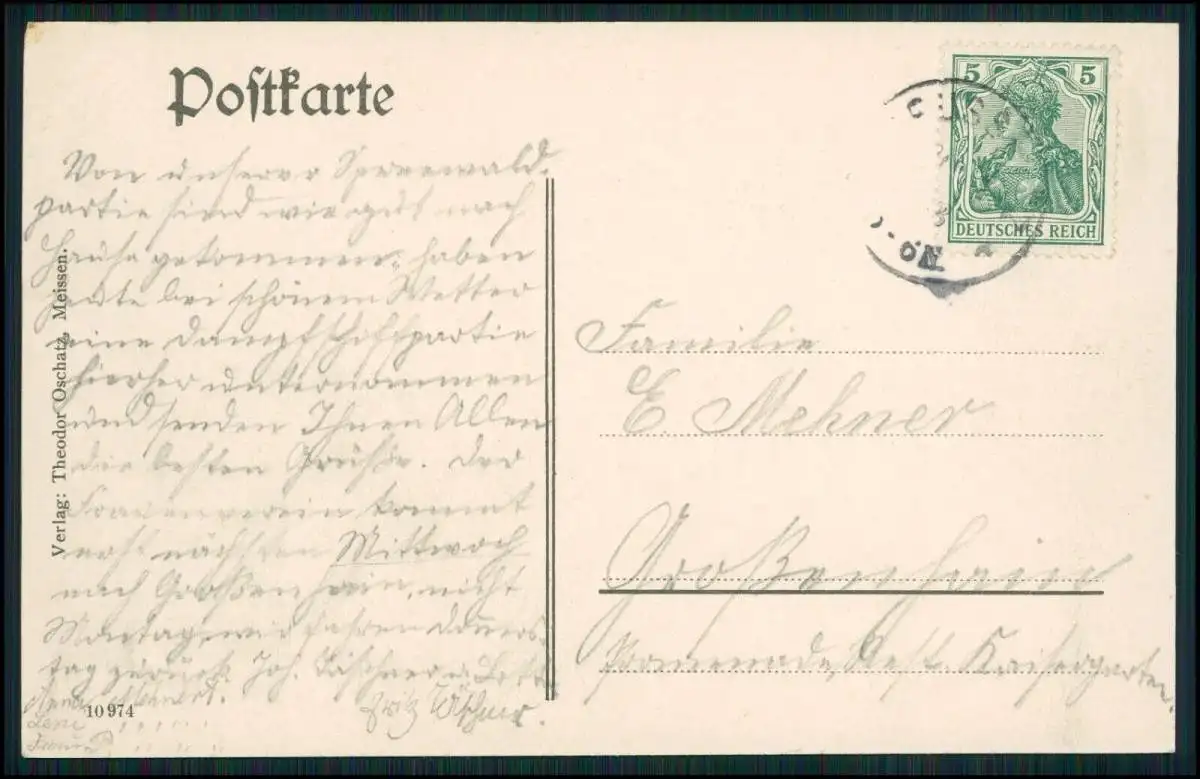 Postkarte
Von unserer Spreewald-
partie sind wir gut nach
Hause gekommen, haben
heute bei schönem Wetter
eine Dampfschiffpartie
hierher unternommen
und senden Ihnen Allen
die besten Grüße. Der
Frauenverein kommt
erst nächsten Mittwoch
nach Großenhain, nicht
Montag, wir fahren Donners-
tag zurück. Joh.
Fritz
Lene
10 974
Verlag: Theodor Oschatz, Meissen.
5 5
DEUTSCHES REICH
Familie
E. Mehner
Großenhain
Promenade, Rest. Kaisergarten.